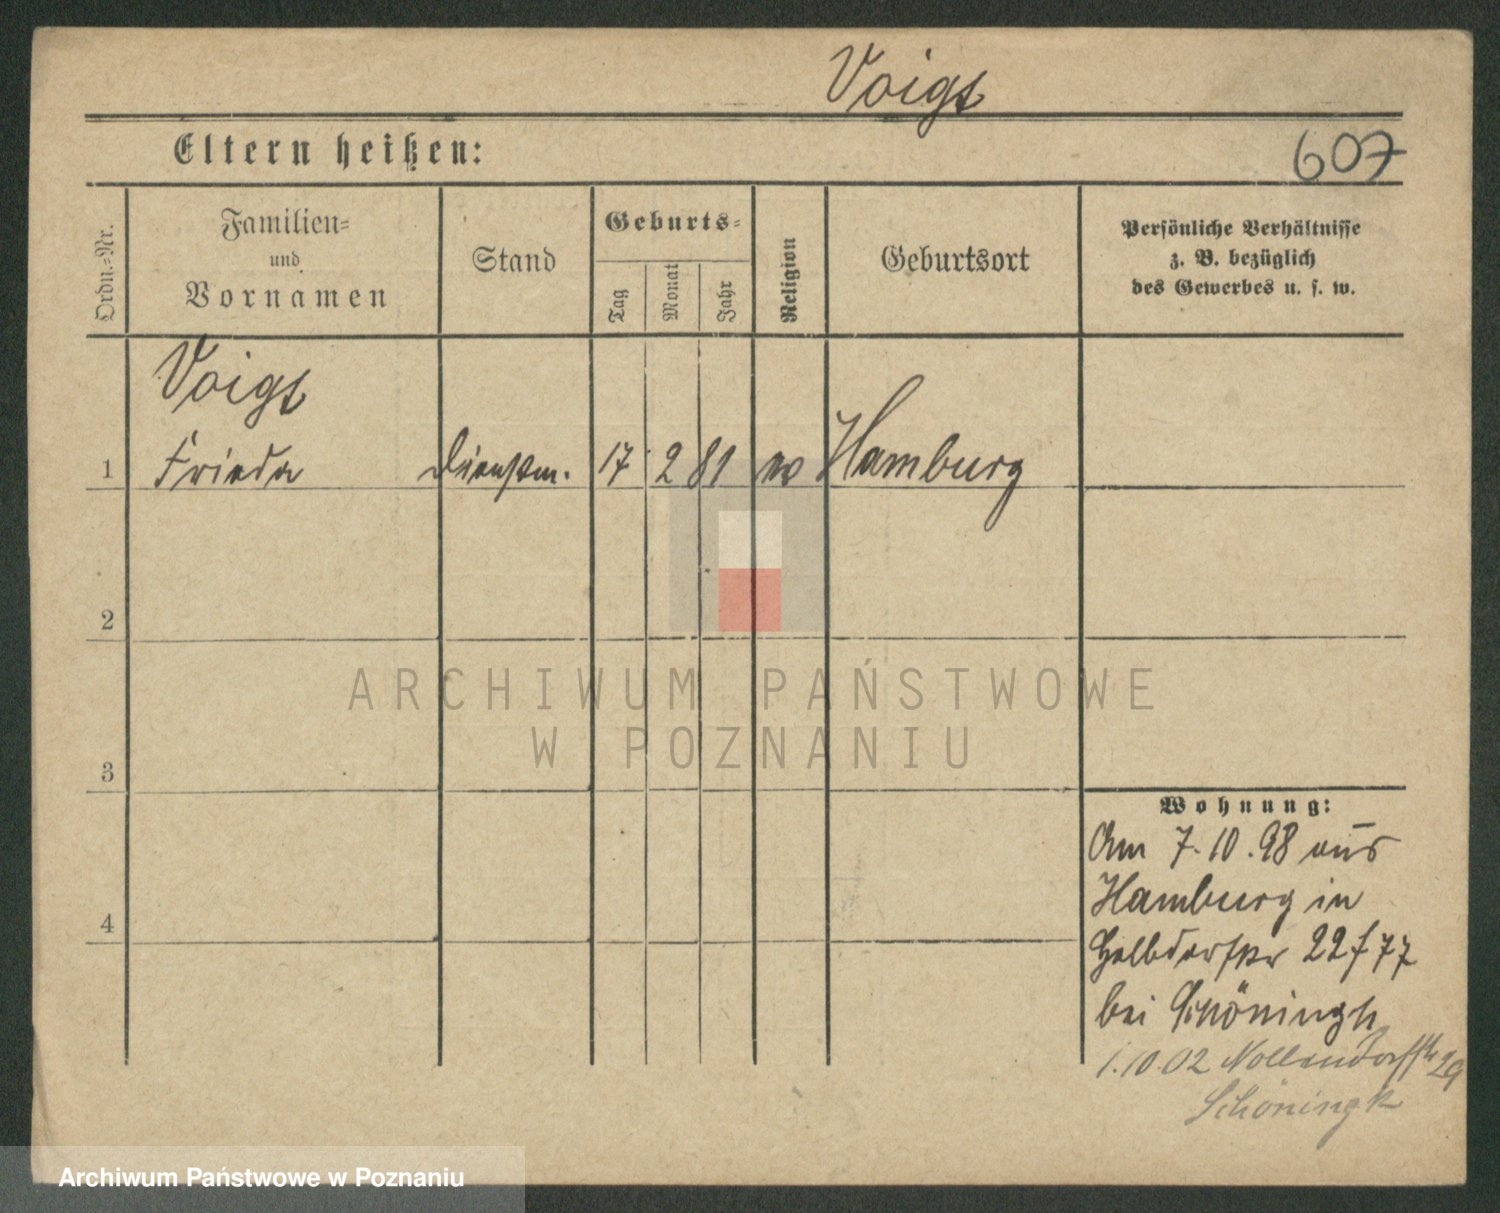 Voigt
Eltern heißen:
607
Ordn.-Nr.
Familien-
und
Vornamen
Stand
Geburts-
Tag
Monat
Jahr
Religion
Geburtsort
Persönliche Verhältnisse
z. B. bezüglich
des Gewerbes u. s. w.
Voigt
1 Frieda Dienstm. 17 2 81 ev Hamburg
2
ARCHIWUM PAŃSTWOWE
W POZNANIU
3
Wohnung:
Am 7.10.98 aus
Hamburg in
4
22 77
bei Schöningh
1.10.02 Nollendorfstr 29
Schöningh
Archiwum Państwowe w Poznaniu